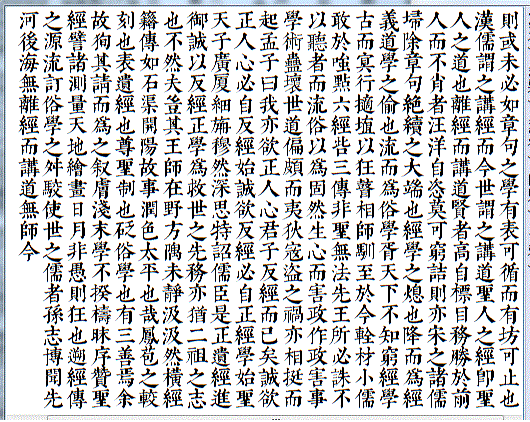 則或未必如章句之學有表可循而有坊可止也
漢儒謂之講經而今世謂之講道聖人之經即聖
人之道也離經而講道賢者高自標目務勝於前
人而不肖者汪洋自恣莫可窮詰則亦宋之諸儒
掃除章句絕續之大端也經學之熄也降而為經
義道學之偷也流而為俗學胥天下不知窮經學
古而冥行擿埴以任瞽相師馴至於今輇材小儒
敢於嗤點六經呰三傳非聖無法先王所必誅不
以聽者而流俗以為固然生心而害政作政害事
學術蠱壞世道偏頗而夷狄寇盜之禍亦相挻而
起孟子曰我亦欲正人心君子反經而已矣誠欲
正人心必自反經始誠欲反經必自正經學始聖
天子廣廈細旃穆然深思特詔儒臣是正遺經進
御誠以反經正學為救世之先務亦猶二祖之志
也不然夫豈其王師在野方隅未靜汲汲然橫經
籍傳如石渠開陽故事潤色太平也哉鳳苞之較
刻也表遺經也尊聖制也砭俗學也有三善焉余
故狥其請而為之敘膚淺末學不揆檮昧序贊聖
經譬諸測量天地繪畫日月非愚則狂也遡經傳
之源流訂俗學之舛駮使世之儒者孫志博聞先
河後海無離經而講道無師今